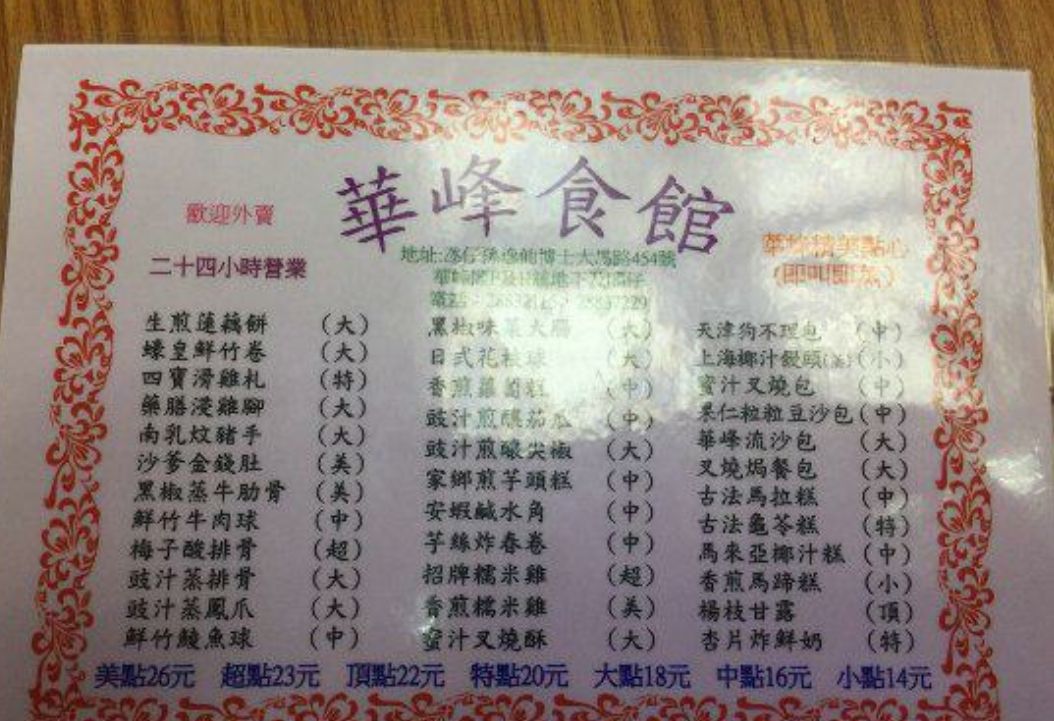 華峰食館
歡迎外賣
二十四小時營業
地址:氹仔孫逸仙博士大馬路454號
華峰精美點心
(即叫即蒸)
生煎蓮藕餅 (大)
蠔皇鮮竹卷 (大)
四寶滑雞札 (特)
藥膳浸雞腳 (大)
南乳炆豬手 (大)
沙爹金錢肚 (美)
黑椒蒸牛肋骨 (美)
鮮竹牛肉球 (中)
梅子酸排骨 (超)
豉汁蒸排骨 (大)
豉汁蒸鳳爪 (大)
鮮竹鯪魚球 (中)
黑椒味菜大腸 (大)
日式花枝球 (大)
香煎蘿蔔糕 (中)
豉汁煎釀茄瓜 (中)
豉汁煎釀尖椒 (大)
家鄉煎芋頭糕 (中)
安蝦鹹水角 (中)
芋絲炸春卷 (中)
招牌糯米雞 (超)
香煎糯米雞 (美)
蜜汁叉燒酥 (大)
天津狗不理包 (中)
上海椰汁饅頭 (小)
蜜汁叉燒包 (中)
果仁粒粒豆沙包 (中)
華峰流沙包 (大)
叉燒焗餐包 (大)
古法馬拉糕 (中)
古法龜苓糕 (特)
馬來亞椰汁糕 (中)
香煎馬蹄糕 (小)
楊枝甘露 (頂)
杏片炸鮮奶 (特)
美點26元 超點23元 頂點22元 特點20元 大點18元 中點16元 小點14元